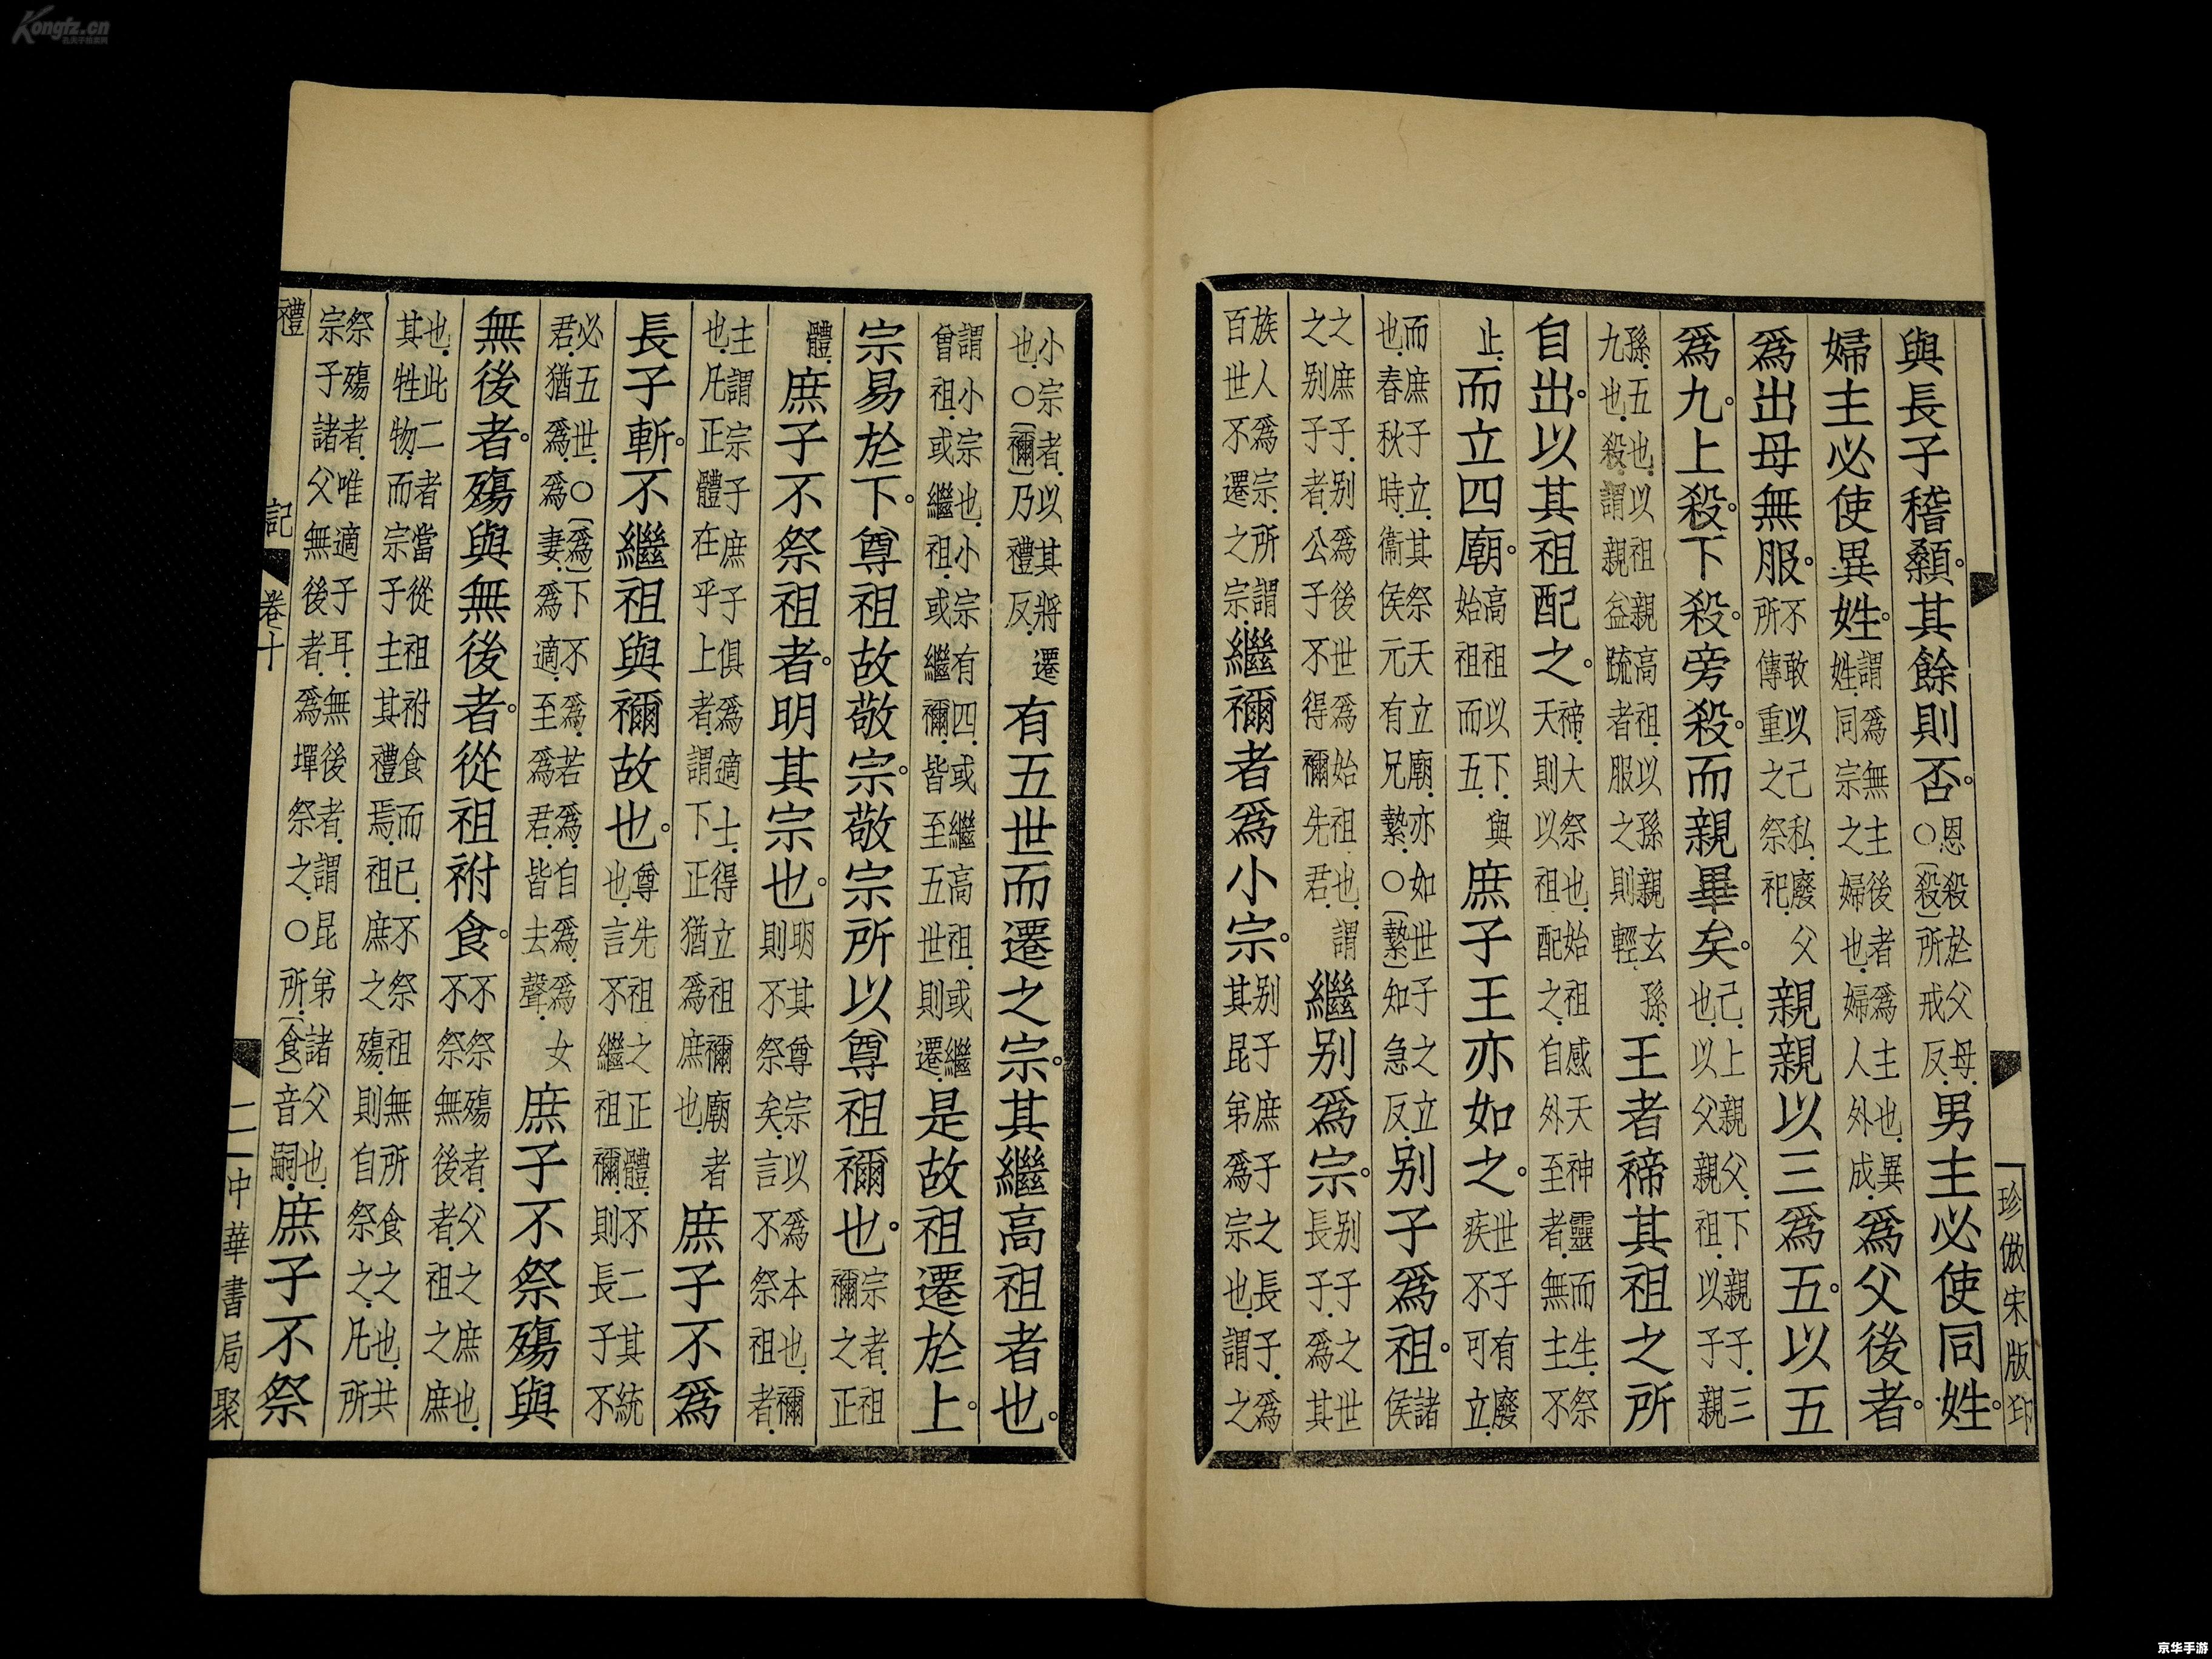 Kongfz.cn
珍倣宋版印
與長子稽顙。其餘則否。恩殺於父母.○(殺)所戒反.男主必使同姓。
婦主必使異姓。謂爲無主後者爲主也.異姓.同宗之婦也.婦人外成.爲父後者。
爲出母無服。不敢以己私廢父所傳重之祭祀.親親以三爲五。以五
爲九。上殺。下殺。旁殺。而親畢矣。己.上親父.下親子.三也.以父親祖.以子親
孫.五也.以祖親高祖.以孫親玄孫.九也.殺.謂親益疏者.服之則輕.王者禘其祖之所
自出。以其祖配之。禘.大祭也.始祖感天神靈而生.祭天則以祖配之.自外至者.無主不
止.而立四廟。高祖以下.與始祖而五.庶子王亦如之。世子有廢疾不可立.
而庶子立.其祭天立廟.亦如世子之立也.春秋時.衞侯元有兄縶.○(縶)知急反.別子爲祖。諸侯
之庶子.別爲後世爲始祖也.謂之別子者.公子不得禰先君.繼別爲宗。別子之世長子爲其
族人爲宗.所謂百世不遷之宗.繼禰者爲小宗。別子庶子之長子.爲其昆弟爲宗也.謂之
小宗者.以其將遷也.○(禰)乃禮反.有五世而遷之宗。其繼高祖者也。
謂小宗也.小宗有四.或繼高祖.或繼曾祖.或繼祖.或繼禰.皆至五世則遷.是故祖遷於上。
宗易於下。尊祖故敬宗。敬宗所以尊祖禰也。宗者.祖禰之正
體.庶子不祭祖者。明其宗也。明其尊宗以爲本也.禰則不祭矣.言不祭祖者.
主謂宗子庶子俱爲適士.得立祖禰廟者也.凡正體在乎上者.謂下正猶爲庶也.庶子不爲
長子斬。不繼祖與禰故也。尊先祖之正體.不二其統也.言不繼祖禰.則長子不
必五世.○(爲)下不爲.若爲.自爲.爲女君.猶爲.爲妻.爲適.至爲君.皆去聲.庶子不祭殤與
無後者。殤與無後者。從祖祔食。不祭殤者.父之庶也.不祭無後者.祖之庶
也.此二者當從祖祔食而已.不祭祖無所食之也.共其牲物.而宗子主其禮焉.祖庶之殤則自祭之.凡所
祭殤者.唯適子耳.無後者.謂昆弟諸父也.宗子諸父無後者.爲墠祭之.○所.(食)音嗣.庶子不祭
禮記 卷十 二 中華書局聚
京华手游